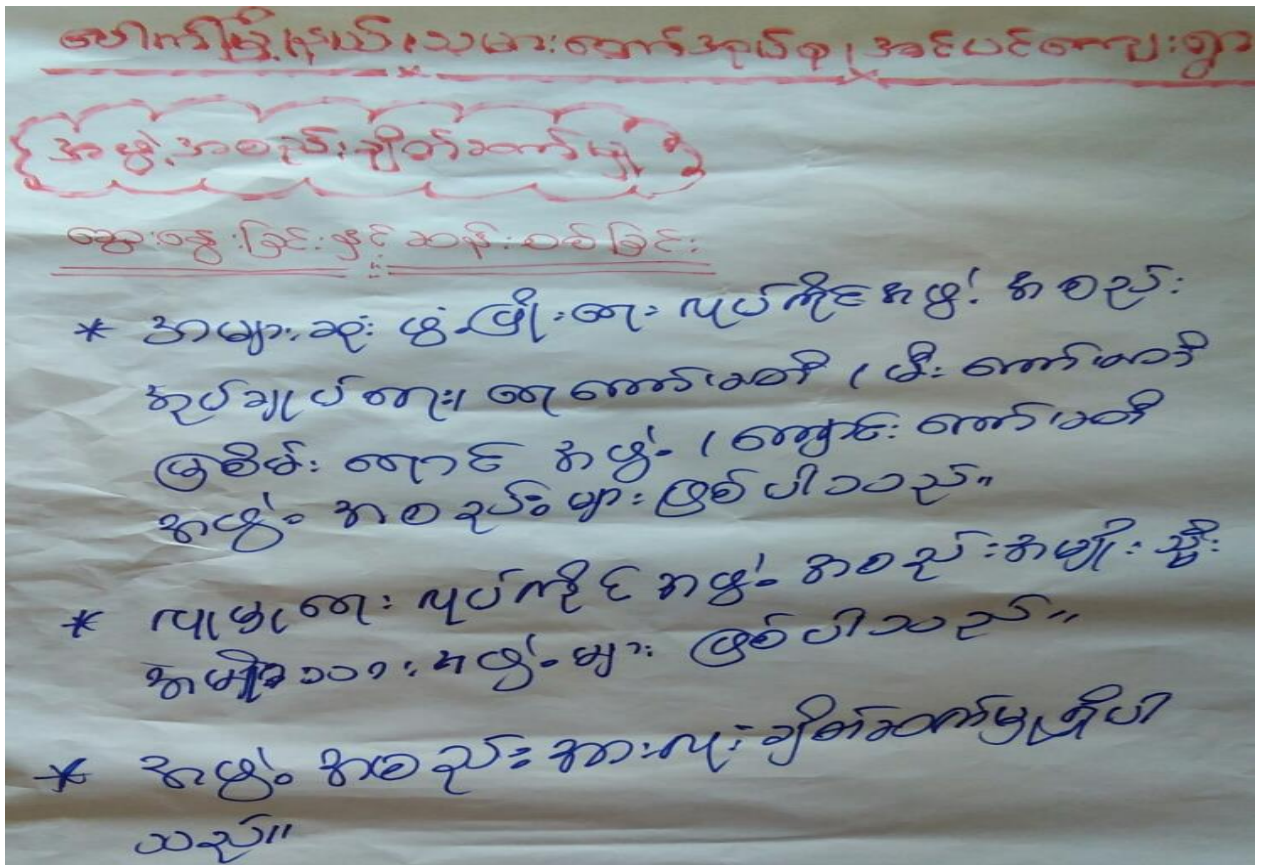 ပေါက်မြို့နယ်၊သမားတော်အုပ်စု၊အင်ပင်ကျေးရွာ
အဖွဲ့အစည်းချိတ်ဆက်မှု
ဆွေးနွေးခြင်းနှင့် ဆန်းစစ်ခြင်း
* အများဆုံး ဖွံ့ဖြိုးရေး လုပ်ကိုင်အဖွဲ့ အစည်း
အုပ်ချုပ်ရေး၊ ရေကော်မတီ ၊ မီးကော်မတီ
မြစိမ်းရောင် အဖွဲ့ ၊ ကျောင်းကော်မတီ
အဖွဲ့ အစည်းများ ဖြစ်ပါသည်။
* လူမှုရေး လုပ်ကိုင် အဖွဲ့ အစည်းအမျိုးသ္မီး
အမျိုးသားအဖွဲ့များ ဖြစ်ပါသည်။
* အဖွဲ့ အစည်းအားလုံး ချိတ်ဆက်မှုရှိပါ
သည်။